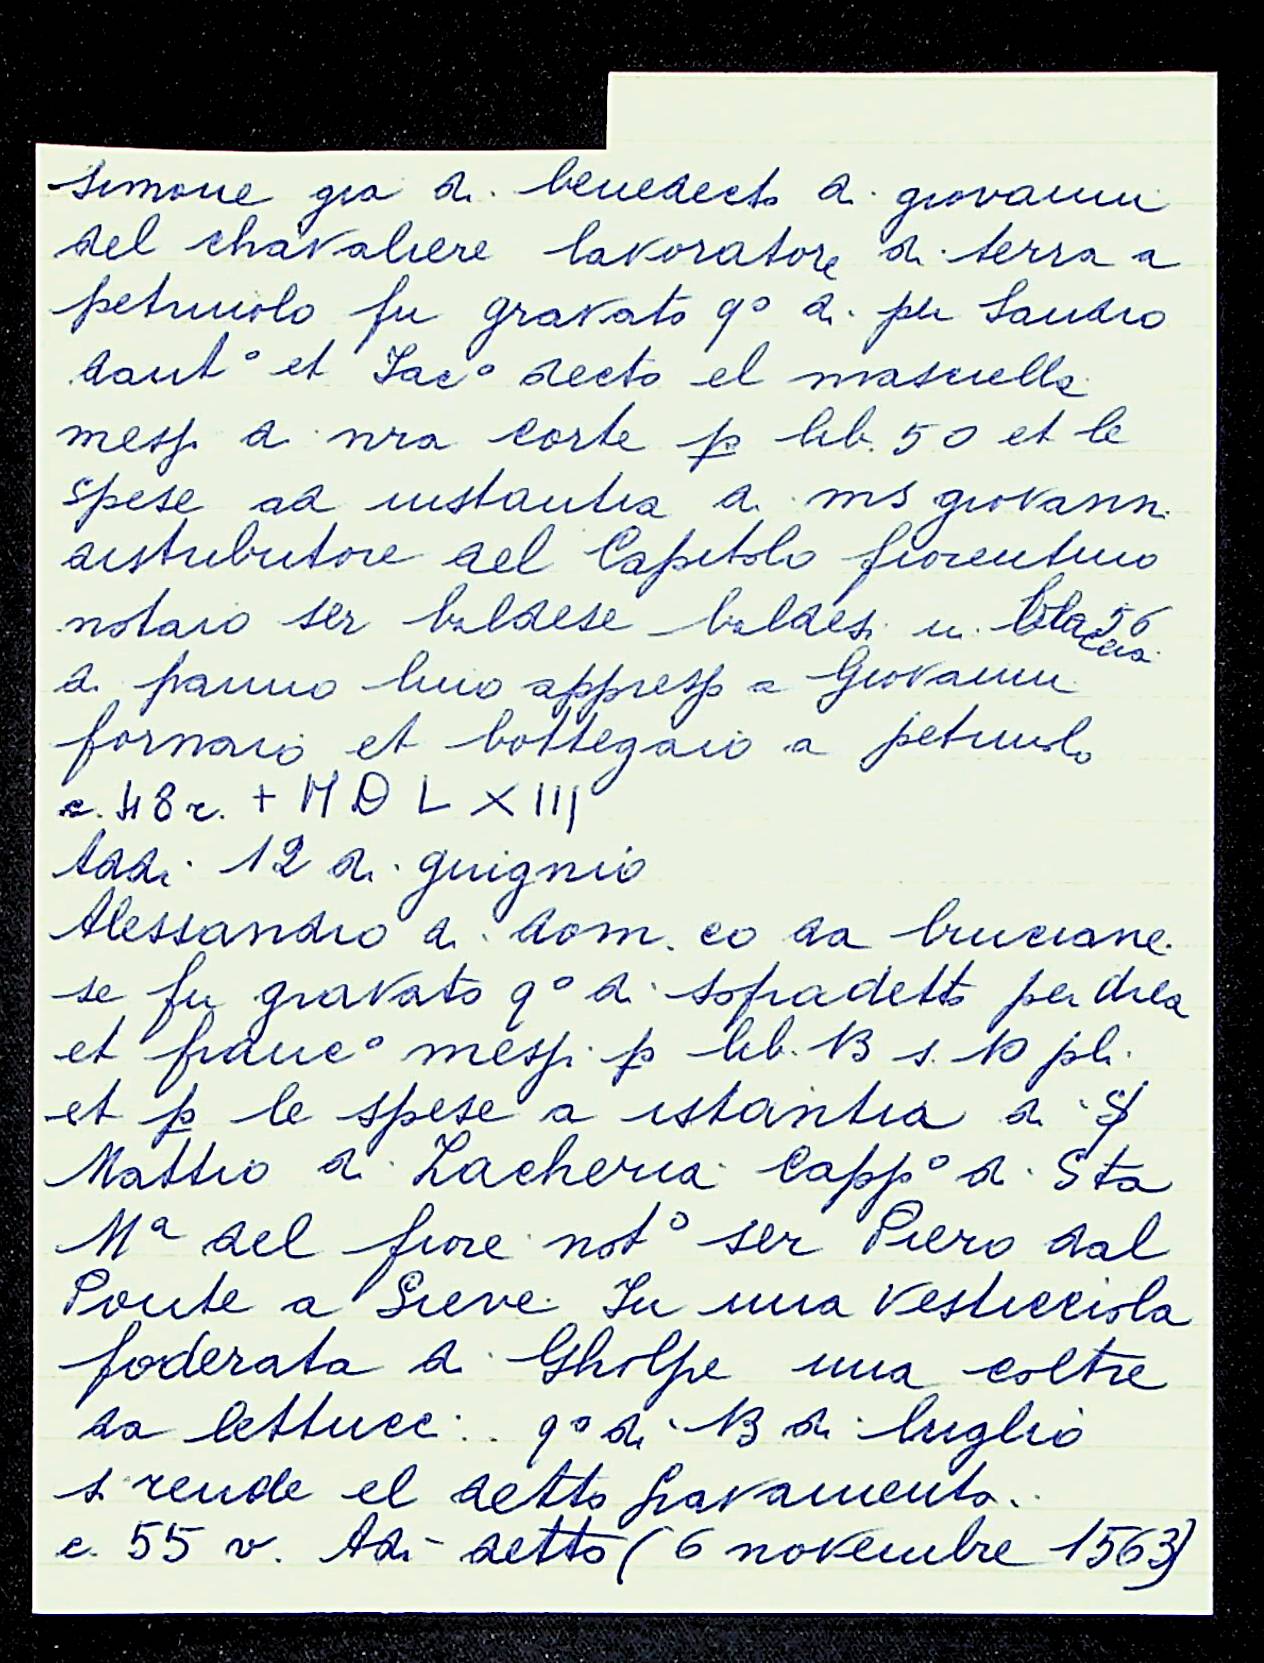 Simone gia di benedecto di giovanni
del chavaliere lavoratore di terra a
petriuolo fu gravato q° di per Sandro
dant° et Jac° decto el mascella
messi di nra corte p lib. 50 et le
spese ad instantia di ms giovanni
distributore del Capitolo fiorentino
notaio ser baldese baldesi in 56
di panno lino appresso a Giovanni
fornaio et bottegaio a petriuolo
c. 48 r. + MDLXIII
Addi 12 di guignio
Alessandro di dom.co da bruciane
se fu gravato q° di sopradetto per drea
et franc° messi p lib. 13 s. 10 pli
et p le spese a istantia di S
Mattio di Zacheria Capp° di Sta
Mª del fiore not° ser Piero dal
Ponte a Sieve In una vesticciola
foderata di Gholpe una coltre
da lettucci.. q° di 13 di luglio
si rende el detto gravamento..
c. 55 v. Adi detto (6 novembre 1563)